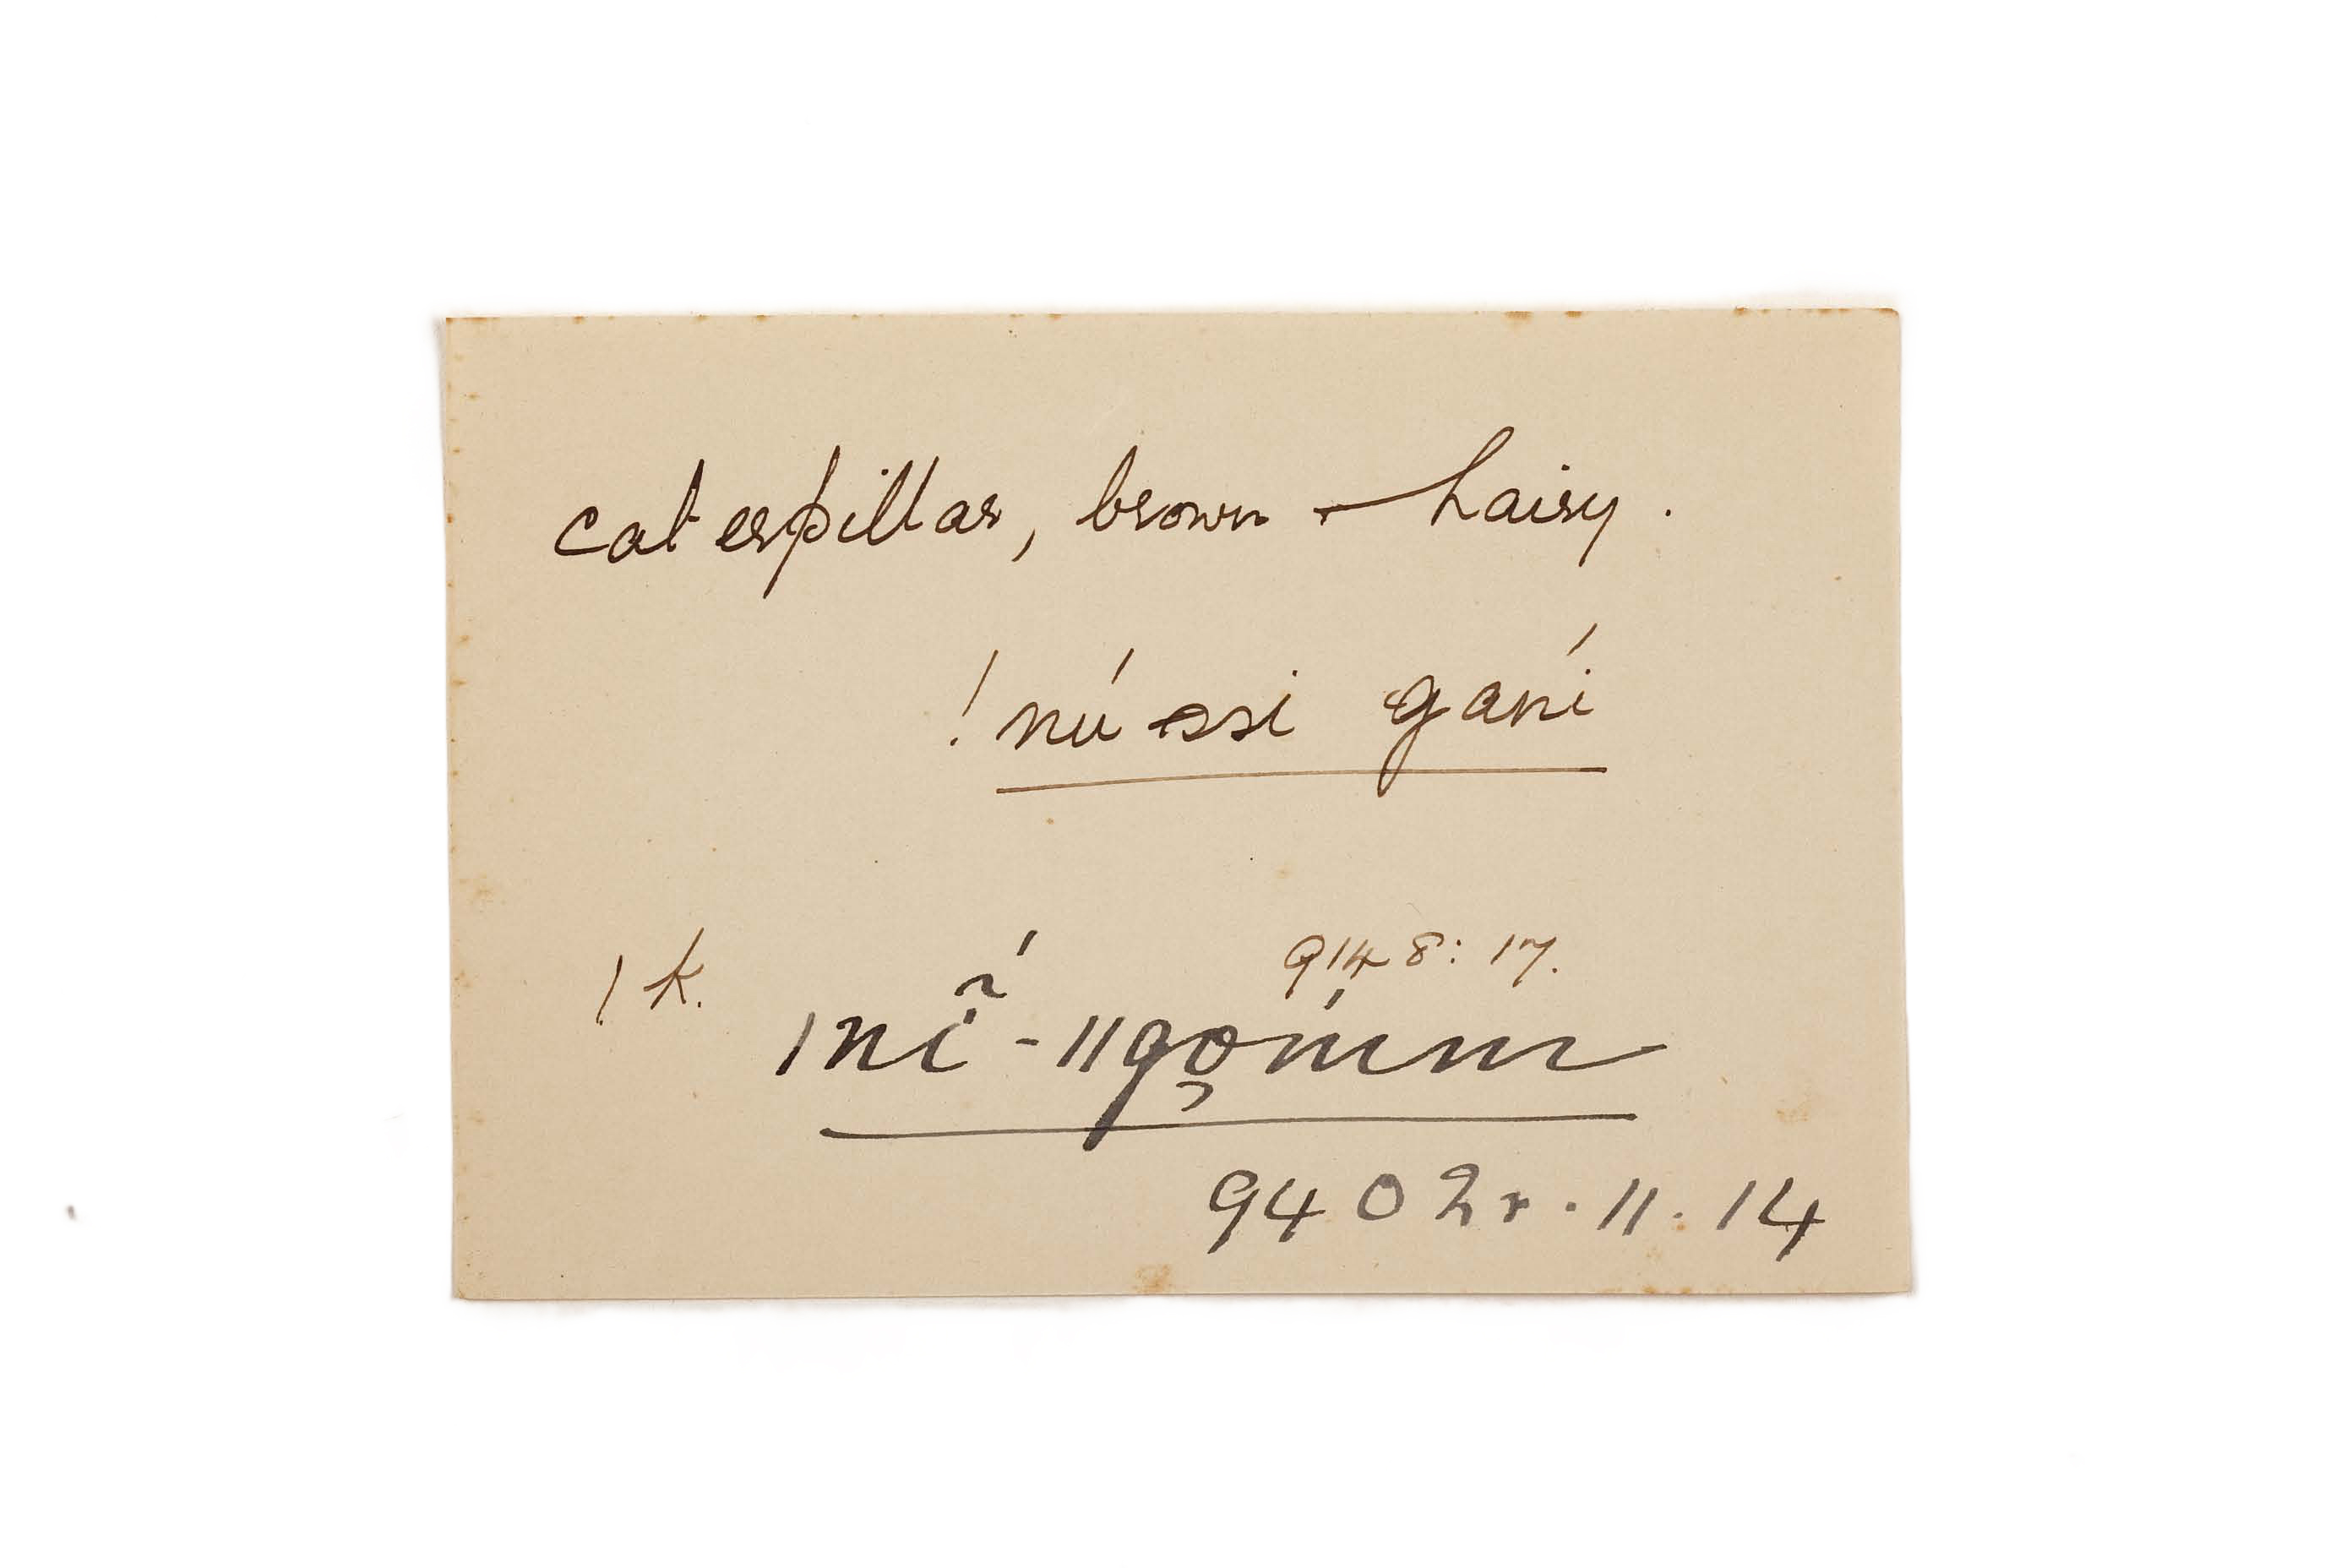 caterpillar, brown - hairy.
!nú ssi ganí
!k. 9148: 17.
|nĩ́-||go̜ḿm
9402r. 11. 14